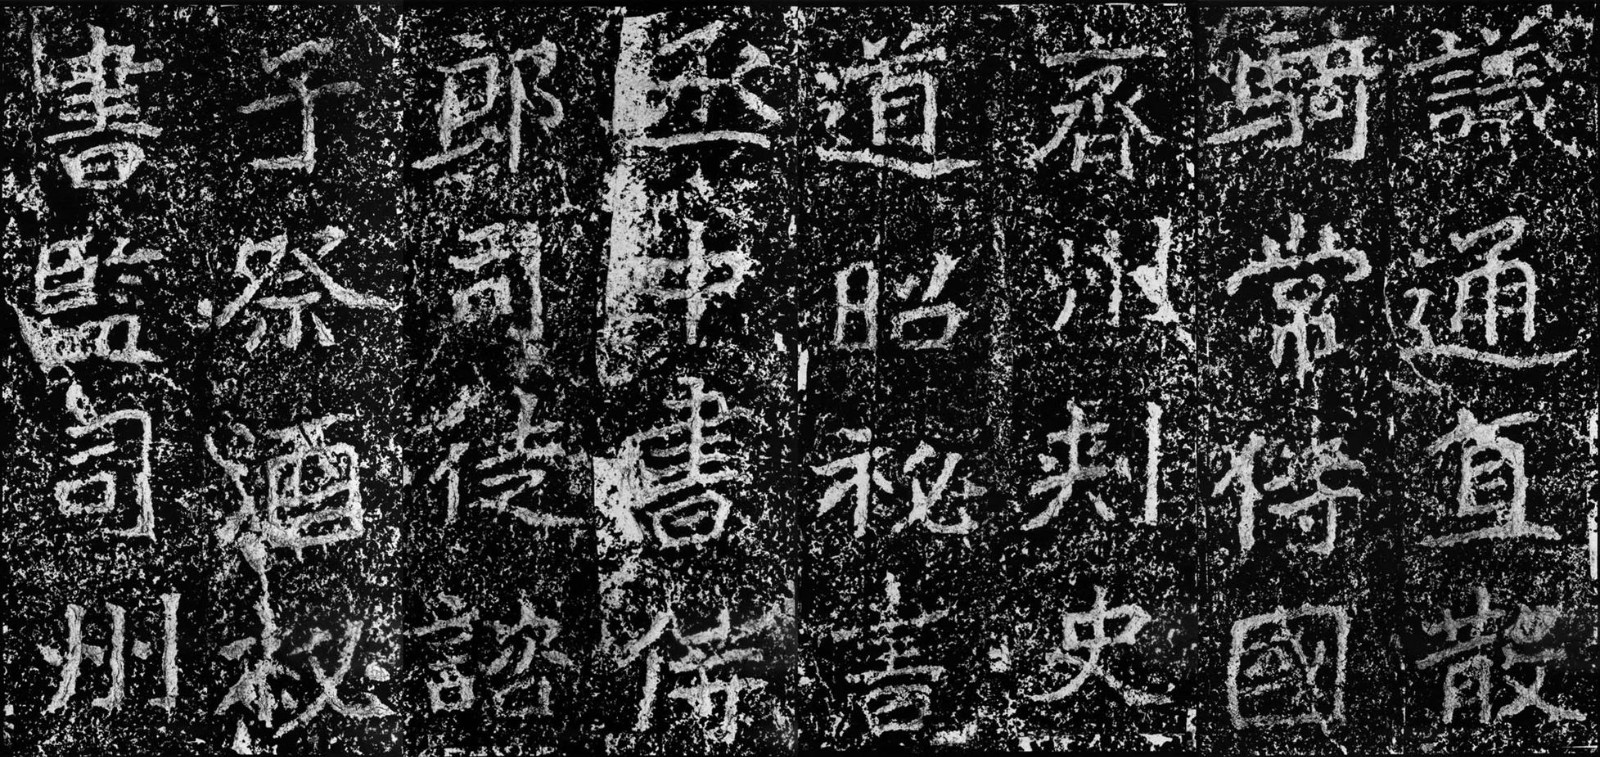 議通直散
騎常侍國
齊州刺史
道昭秘書
丞中書侍
郎司徒諮
子祭酒秘
書監司州